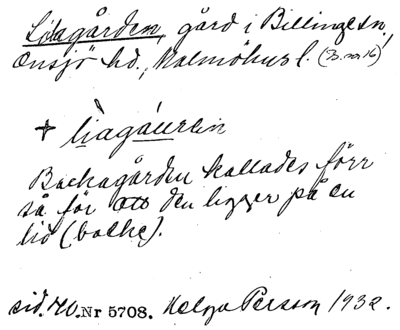 Liagården, gård i Billinge sn,
Onsjö hd., Malmöhus l. (B. nr 16)
+ liagáuren
Backagården kallades förr
så för att den ligger på en
lid (backe).
sid. 40. Nr 5708. Helga Persson 1932.